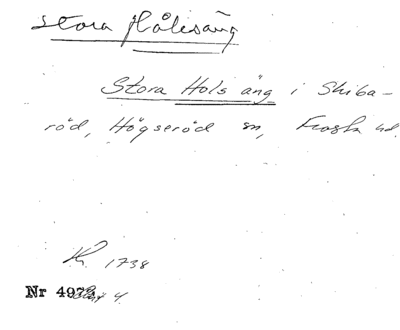 Stora Hålesäng
Stora Hols äng i Skiba-
röd, Högseröd sn, Frosta hd.
Kr. 1738
Nr 497 4